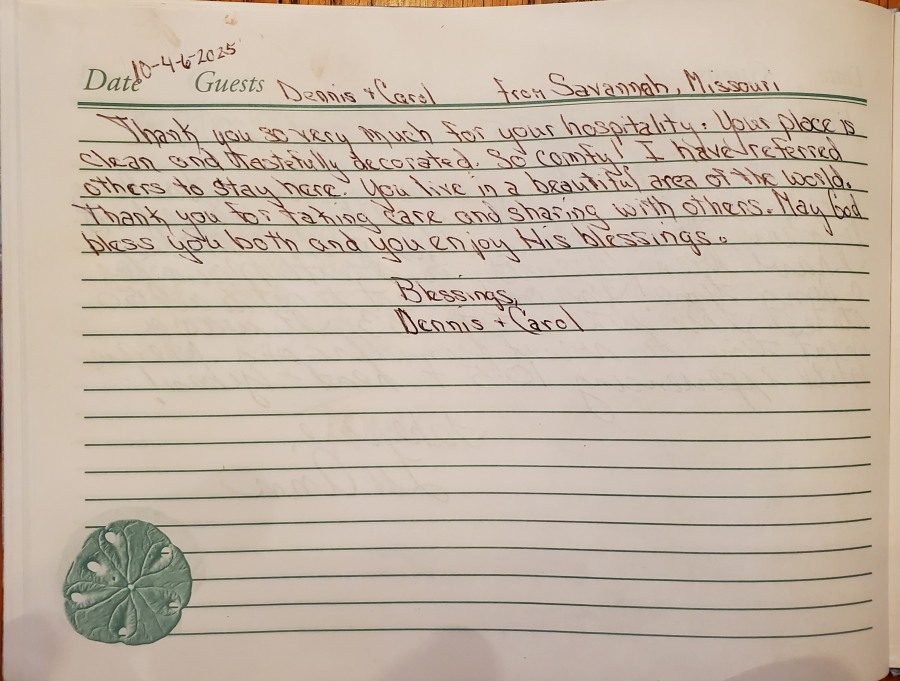 Date 10-4-6-2025 Guests Dennis + Carol from Savannah, Missouri
Thank you so very much for your hospitality. Your place is
clean and tastefully decorated. So comfy! I have referred
others to stay here. You live in a beautiful area of the world.
Thank you for taking care and sharing with others. May God
bless you both and you enjoy His blessings.
Blessings,
Dennis + Carol